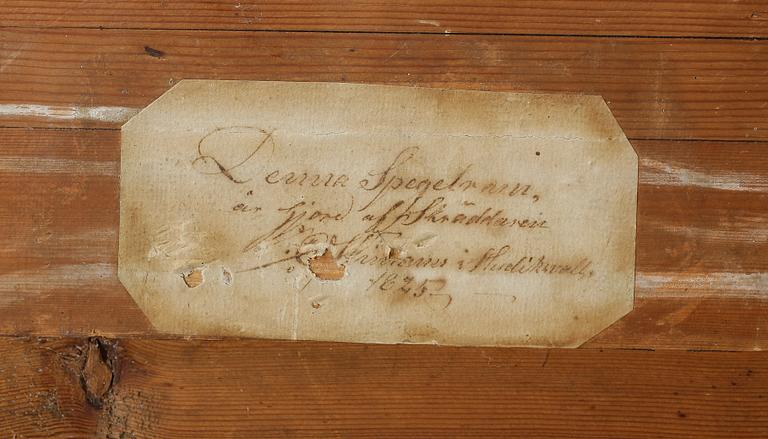 Denna Spegelram,
är gjord af Skräddaren
i Hudikwall,
1825